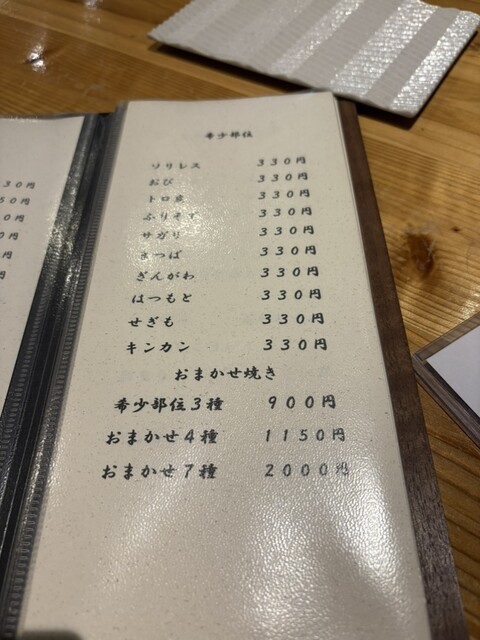 希少部位
ソリレス 330円
おび 330円
トロ皮 330円
ふりそで 330円
サガリ 330円
330円
ぎんがわ 330円
はつもと 330円
せぎも 330円
キンカン 330円
おまかせ焼き
希少部位3種 900円
おまかせ4種 1150円
おまかせ7種 2000円
30円
50円
0円
0円
円
円